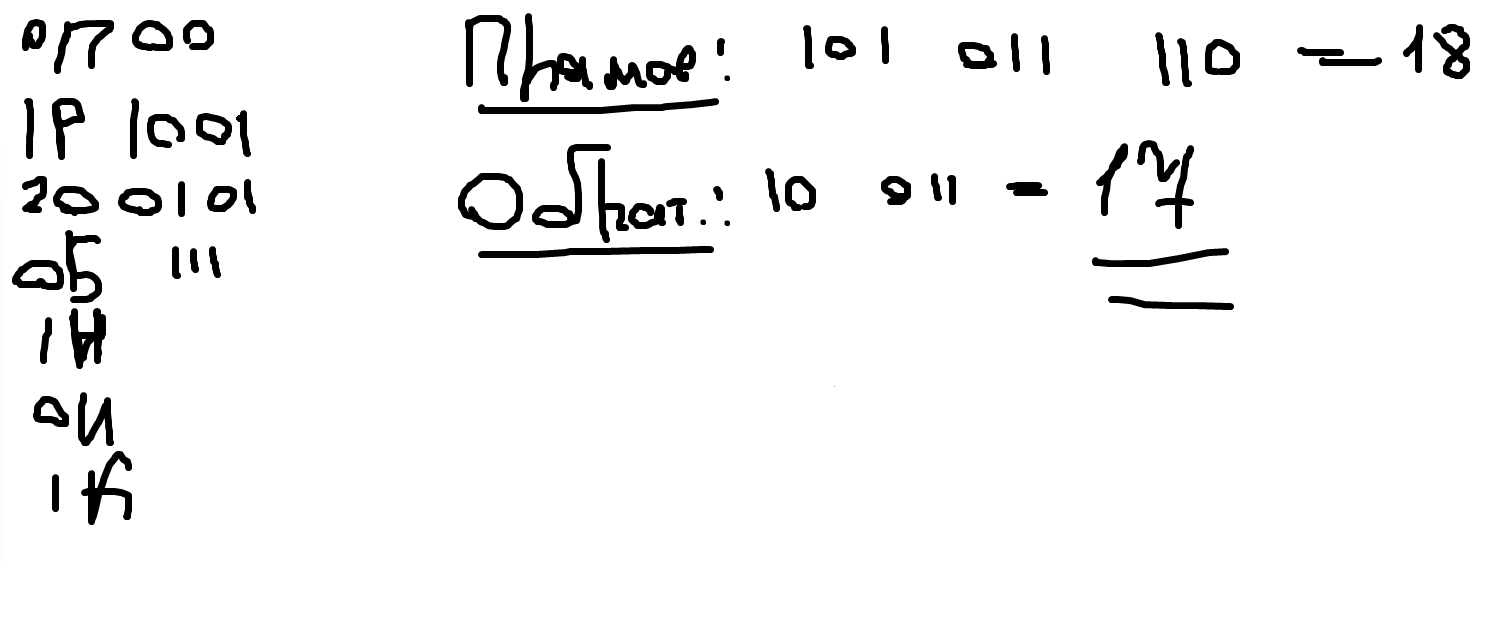 0П 00
1Р 1001
20 00101
0Б 111
1Н
0И
1К
Прямое: 101 011 110 = 18
Обрат.: 10 011 = 17